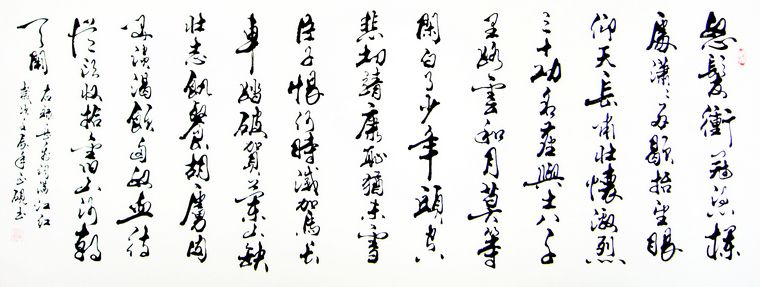 怒髮衝冠憑欄
處瀟瀟雨歇抬望眼
仰天長嘯壯懷激烈
三十功名塵與土八千
里路雲和月莫等
閑白了少年頭空
悲切靖康恥猶未雪
臣子恨何時滅駕長
車踏破賀蘭山缺
壯志飢餐胡虜肉
笑談渴飲匈奴血待
從頭收拾舊山河朝
天闕
右録岳飛詞滿江紅